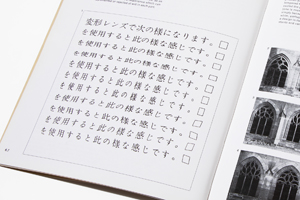 変形レンズで次の様になります。□
を使用すると此の様な感じです。□
を使用すると此の様な感じです。□
を使用すると此の様な感じです。□
を使用すると此の様な感じです。□
を使用すると此の様な感じです。□
を使用すると此の様な感じです。□
を使用すると此の様な感じです。□
を使用すると此の様な感じです。□
を使用すると此の様な感じです。□